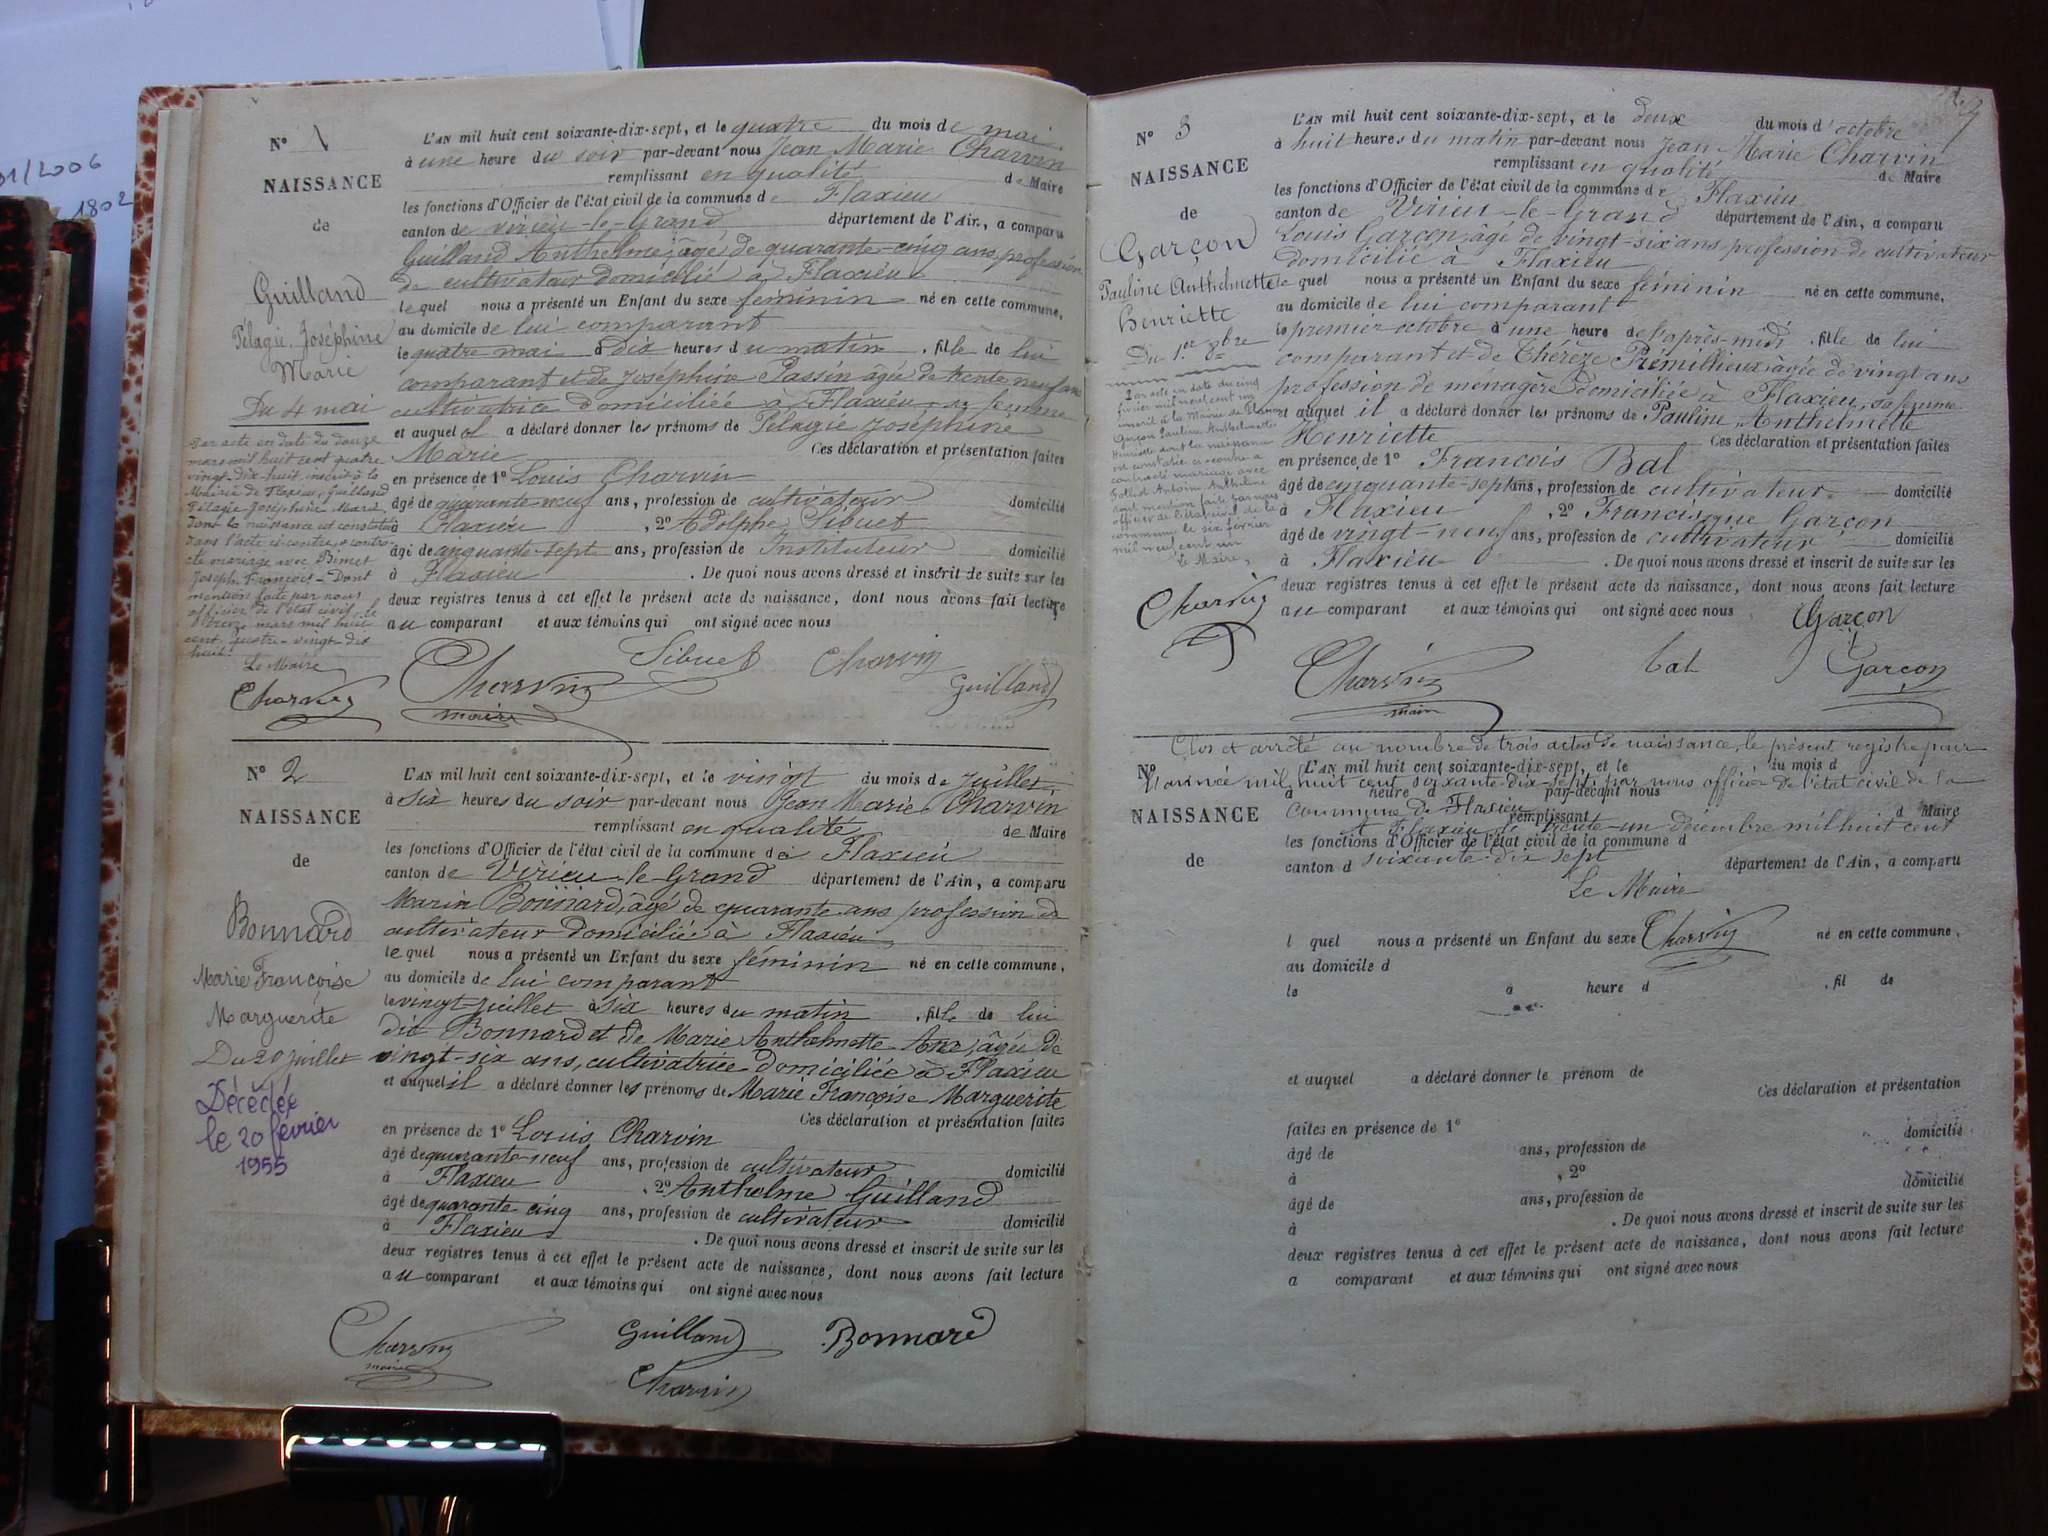 01/2006
1802
N° 1
NAISSANCE
de
Guilland
Pélagie Joséphine
Marie
Du 4 mai
Par acte en date du douze
mars mil huit cent quatre
vingt-dix-huit inscrit à la
Mairie de Flaxieu, Guilland
Pélagie Joséphine Marie
dont la naissance est constatée
dans l'acte ci-contre a contrac-
té mariage avec Binet
Joseph François - Dont
mention faite par nous
officier de l'état civil, le
treize mars mil huit
cent quatre-vingt-dix
huit.
Le Maire
Charvin
L'AN mil huit cent soixante-dix-sept, et le quatre du mois de mai
à une heure du soir par-devant nous Jean Marie Charvin
remplissant en qualité de Maire
les fonctions d'Officier de l'état civil de la commune de Flaxieu
canton de virieu-le-Grand département de l'Ain, a comparu
Guilland Anthelme, âgé de quarante-cinq ans, profession
de cultivateur domicilié à Flaxieu
lequel nous a présenté un Enfant du sexe féminin né en cette commune,
au domicile de lui comparant
le quatre mai à dix heures du matin, fille de lui
comparant et de Joséphine Passin âgée de trente neuf ans
cultivatrice domiciliée à Flaxieu, sa femme
et auquel il a déclaré donner les prénoms de Pélagie Joséphine
Marie Ces déclaration et présentation faites
en présence de 1° Louis Charvin
âgé de quarante-neuf ans, profession de cultivateur domicilié
à Flaxieu, 2° Adolphe Sibuet
âgé de cinquante-sept ans, profession de Instituteur domicilié
à Flaxieu. De quoi nous avons dressé et inscrit de suite sur les
deux registres tenus à cet effet le présent acte de naissance, dont nous avons fait lecture
au comparant et aux témoins qui ont signé avec nous
Charvin Sibuet Charvin
maire Guilland
N° 2
NAISSANCE
de
Bonnard
Marie Françoise
Marguerite
Du 20 juillet
Décédée
le 20 février
1955
L'AN mil huit cent soixante-dix-sept, et le vingt du mois de juillet
à six heures du soir par-devant nous Jean Marie Charvin
remplissant en qualité de Maire
les fonctions d'Officier de l'état civil de la commune de Flaxieu
canton de Virieu-le-Grand département de l'Ain, a comparu
Marin Bonnard, âgé de quarante ans profession de
cultivateur domicilié à Flaxieu
lequel nous a présenté un Enfant du sexe féminin né en cette commune,
au domicile de lui comparant
le vingt juillet à six heures du matin, fille de lui
dit Bonnard et de Marie Anthelmette âgée de
vingt-six ans, cultivatrice domiciliée à Flaxieu
et auquel il a déclaré donner les prénoms de Marie Françoise Marguerite
Ces déclaration et présentation faites
en présence de 1° Louis Charvin
âgé de quarante-neuf ans, profession de cultivateur domicilié
à Flaxieu, 2° Anthelme Guilland
âgé de quarante cinq ans, profession de cultivateur domicilié
à Flaxieu. De quoi nous avons dressé et inscrit de suite sur les
deux registres tenus à cet effet le présent acte de naissance, dont nous avons fait lecture
au comparant et aux témoins qui ont signé avec nous
Charvin Guilland Bonnard
maire
Charvin
N° 3
NAISSANCE
de
Garçon
Pauline Anthelmette
Henriette
Du 1er 8bre
Par acte en date du cinq
février mil neuf cent un
inscrit à la Mairie de
Garçon Pauline Anthelmette
Henriette dont la naissance
est constatée ci-contre a
contracté mariage avec
Antoine Anthelme
dont mention faite par nous
officier de l'état civil de la
commune le six février
mil neuf cent un
Le Maire,
Charvin
L'AN mil huit cent soixante-dix-sept, et le deux du mois d'octobre
à huit heures du matin par-devant nous Jean Marie Charvin
remplissant en qualité de Maire
les fonctions d'Officier de l'état civil de la commune de Flaxieu
canton de Virieu-le-Grand département de l'Ain, a comparu
Louis Garçon, âgé de vingt-six ans, profession de cultivateur
domicilié à Flaxieu
lequel nous a présenté un Enfant du sexe féminin né en cette commune,
au domicile de lui comparant
le premier octobre à une heure de l'après-midi, fille de lui
comparant et de Thérèze Prémillieux, âgée de vingt ans
profession de ménagère domiciliée à Flaxieu, sa femme
et auquel il a déclaré donner les prénoms de Pauline Anthelmette
Henriette Ces déclaration et présentation faites
en présence de 1° François Bal
âgé de cinquante-sept ans, profession de cultivateur domicilié
à Flaxieu, 2° Francisque Garçon
âgé de vingt-neuf ans, profession de cultivateur domicilié
à Flaxieu. De quoi nous avons dressé et inscrit de suite sur les
deux registres tenus à cet effet le présent acte de naissance, dont nous avons fait lecture
au comparant et aux témoins qui ont signé avec nous Garçon
Charvin bal Garçon
maire
Clos et arrêté au nombre de trois actes de naissance, le présent registre pour
N° L'AN mil huit cent soixante-dix-sept, et le du mois d
l'année mil huit cent soixante-dix-sept, par nous officier de l'état civil de la
à heure par-devant nous
NAISSANCE
commune de Flaxieu
remplissant d Maire
A Flaxieu le trente-un décembre mil huit cent
les fonctions d'Officier de l'état civil de la commune d
soixante-dix-sept
de
canton d département de l'Ain, a comparu
Le Maire
Charvin
l quel nous a présenté un Enfant du sexe né en cette commune,
au domicile d
le à heure d , fil de
et auquel a déclaré donner le prénom de
Ces déclaration et présentation
faites en présence de 1°
âgé de ans, profession de domicilié
à , 2°
âgé de ans, profession de domicilié
à . De quoi nous avons dressé et inscrit de suite sur les
deux registres tenus à cet effet le présent acte de naissance, dont nous avons fait lecture
a comparant et aux témoins qui ont signé avec nous